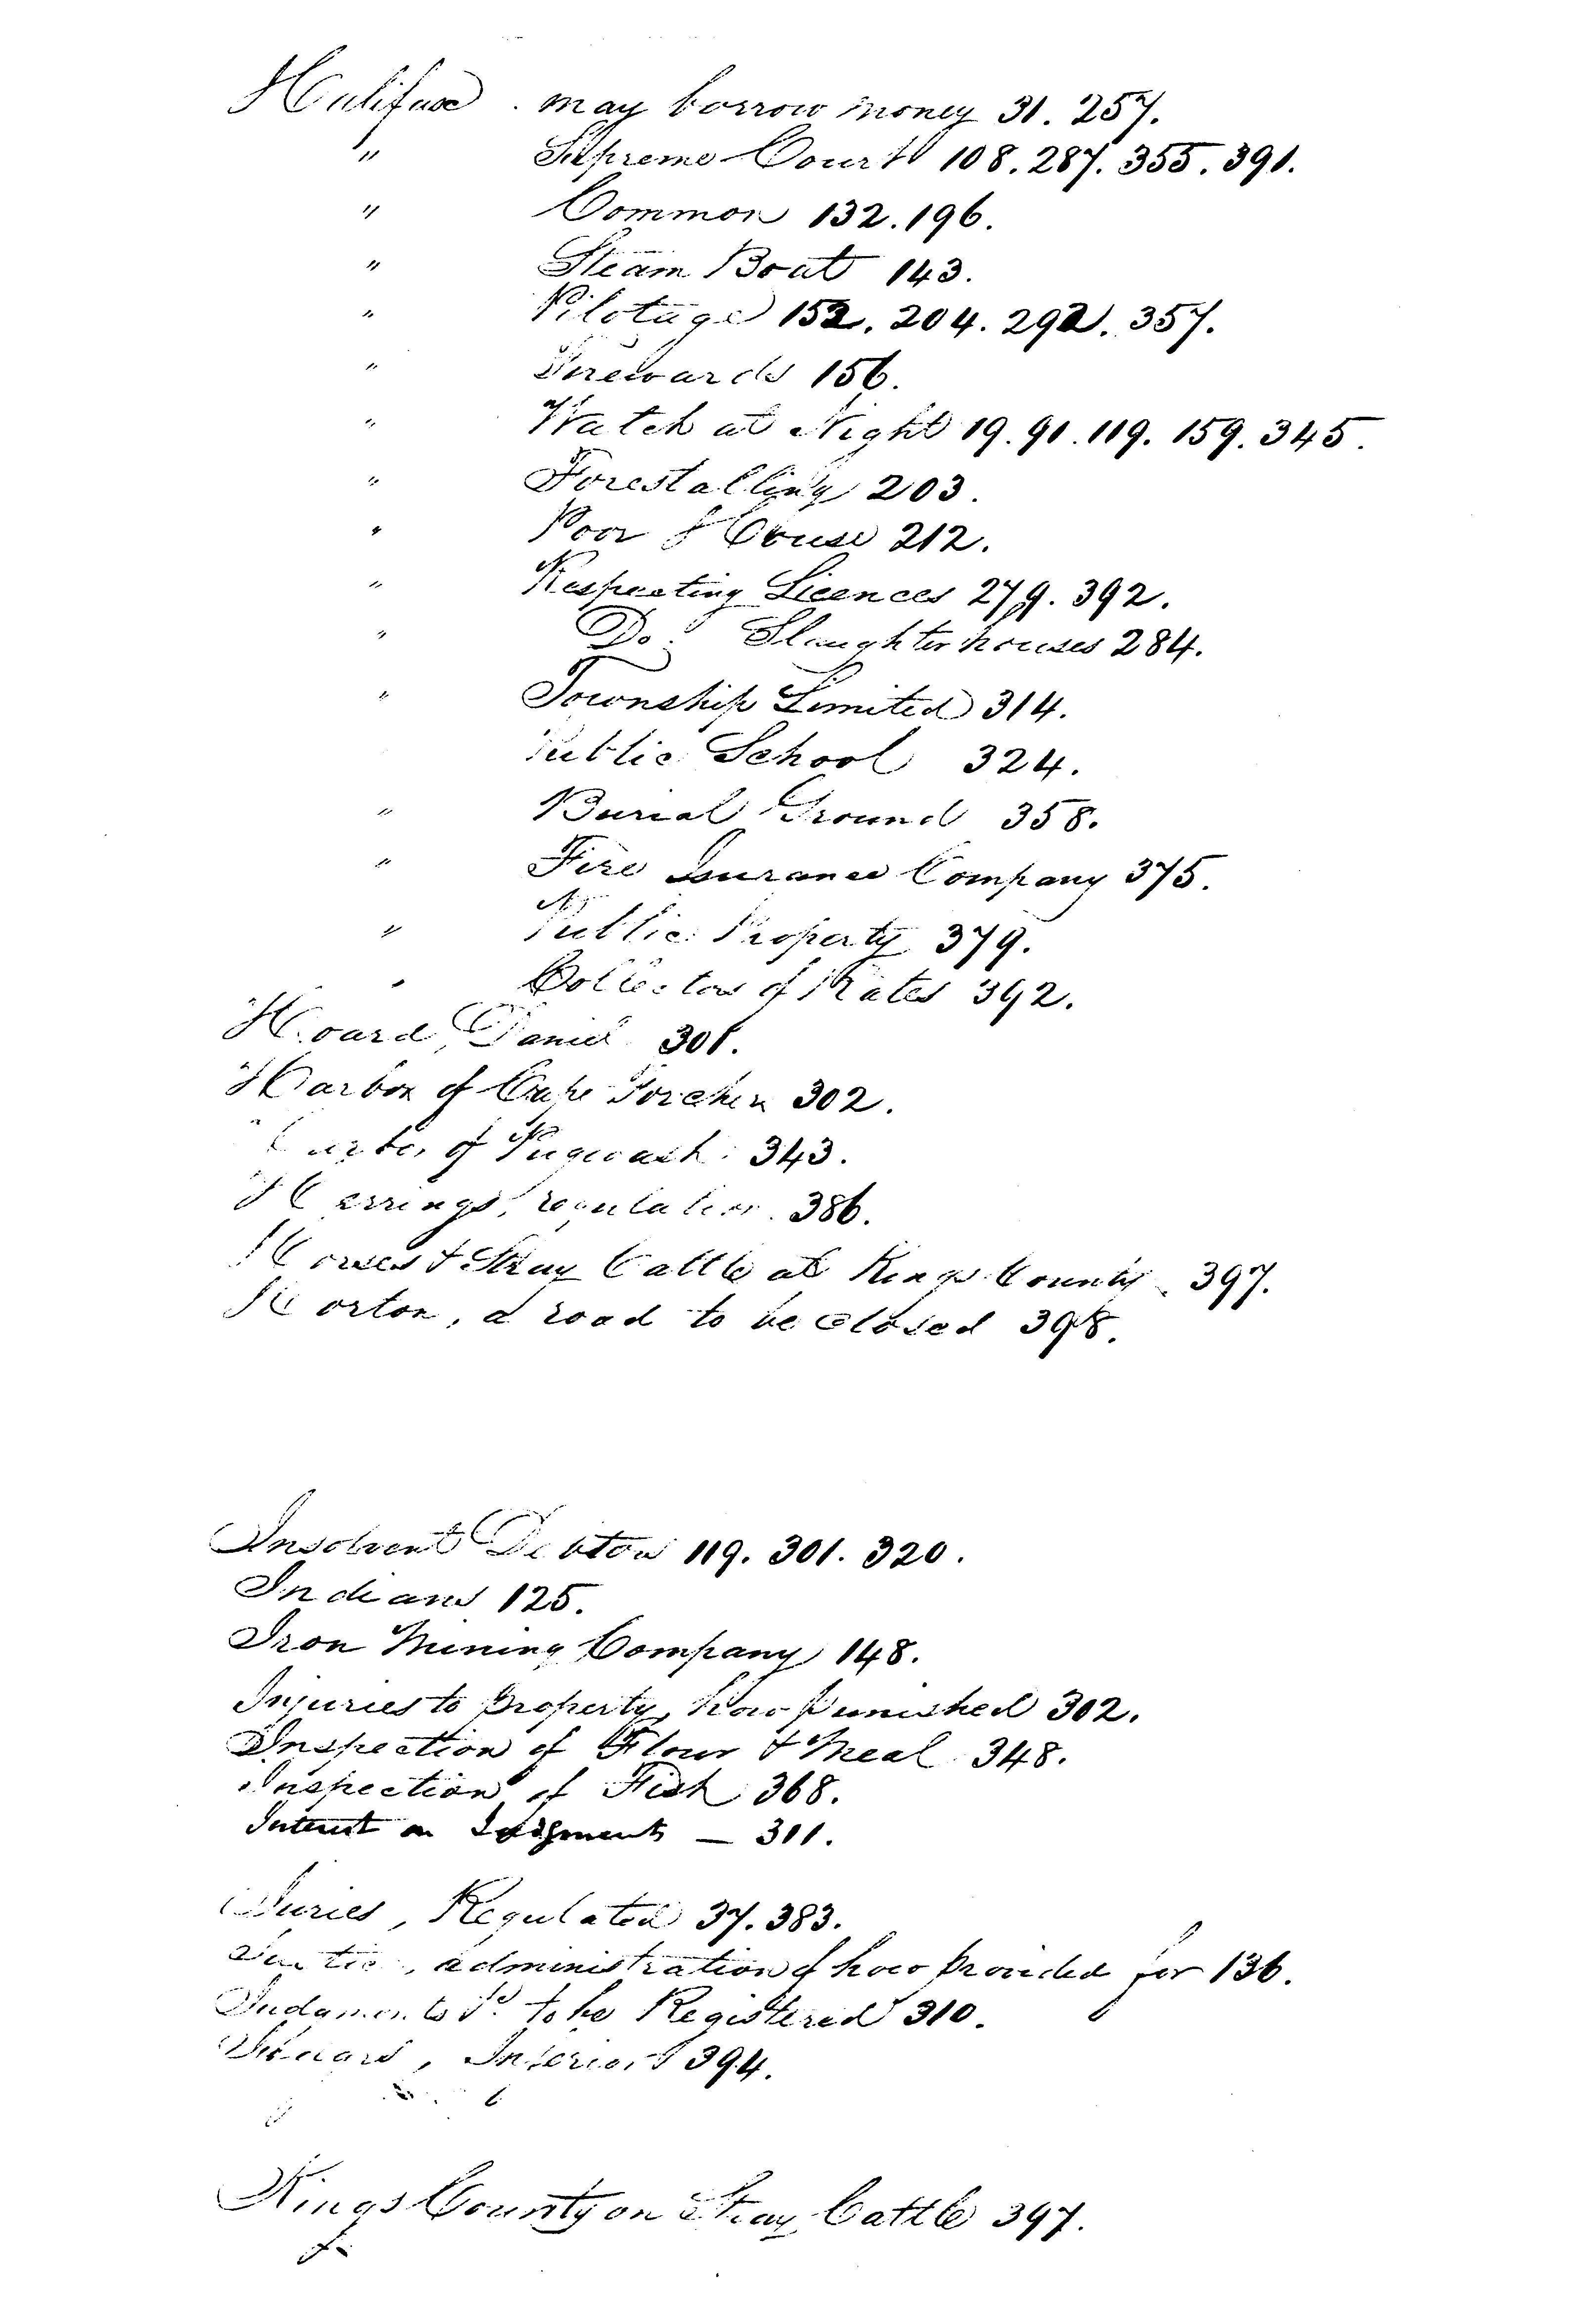 Halifax . may borrow money 31. 257.
" Supreme Court 108. 287. 355. 391.
" Common 132. 196.
" Steam Boat 143.
" Pilotage 152. 204. 292. 357.
" Firewards 156.
" Watch at Night 19. 91. 119. 159. 345.
" Forestalling 203.
" Poor House 212.
" Respecting Licences 279. 392.
" Do. Slaughterhouses 284.
" Township Limited 314.
Public School 324.
" Burial Ground 358.
" Fire Insurance Company 375.
" Public Property 379.
" Collectors of Rates 392.
Hoard, Daniel 301.
Harbor of Cape Forchu 302.
Harbor of Pugwash 343.
Herrings, regulation 386.
Horses & Stray Cattle at Kings County 397.
Horton, a road to be closed 398.
Insolvent Debtors 119. 301. 320.
Indians 125.
Iron Mining Company 148.
Injuries to Property, how punished 302.
Inspection of Flour & Meal 348.
Inspection of Fish 368.
Interest on Judgments — 311.
Juries, Regulated 37. 383.
Justice, administration of how provided for 136.
Judgments to be Registered 310.
Inferior 394.
Kings County on Stray Cattle 397.